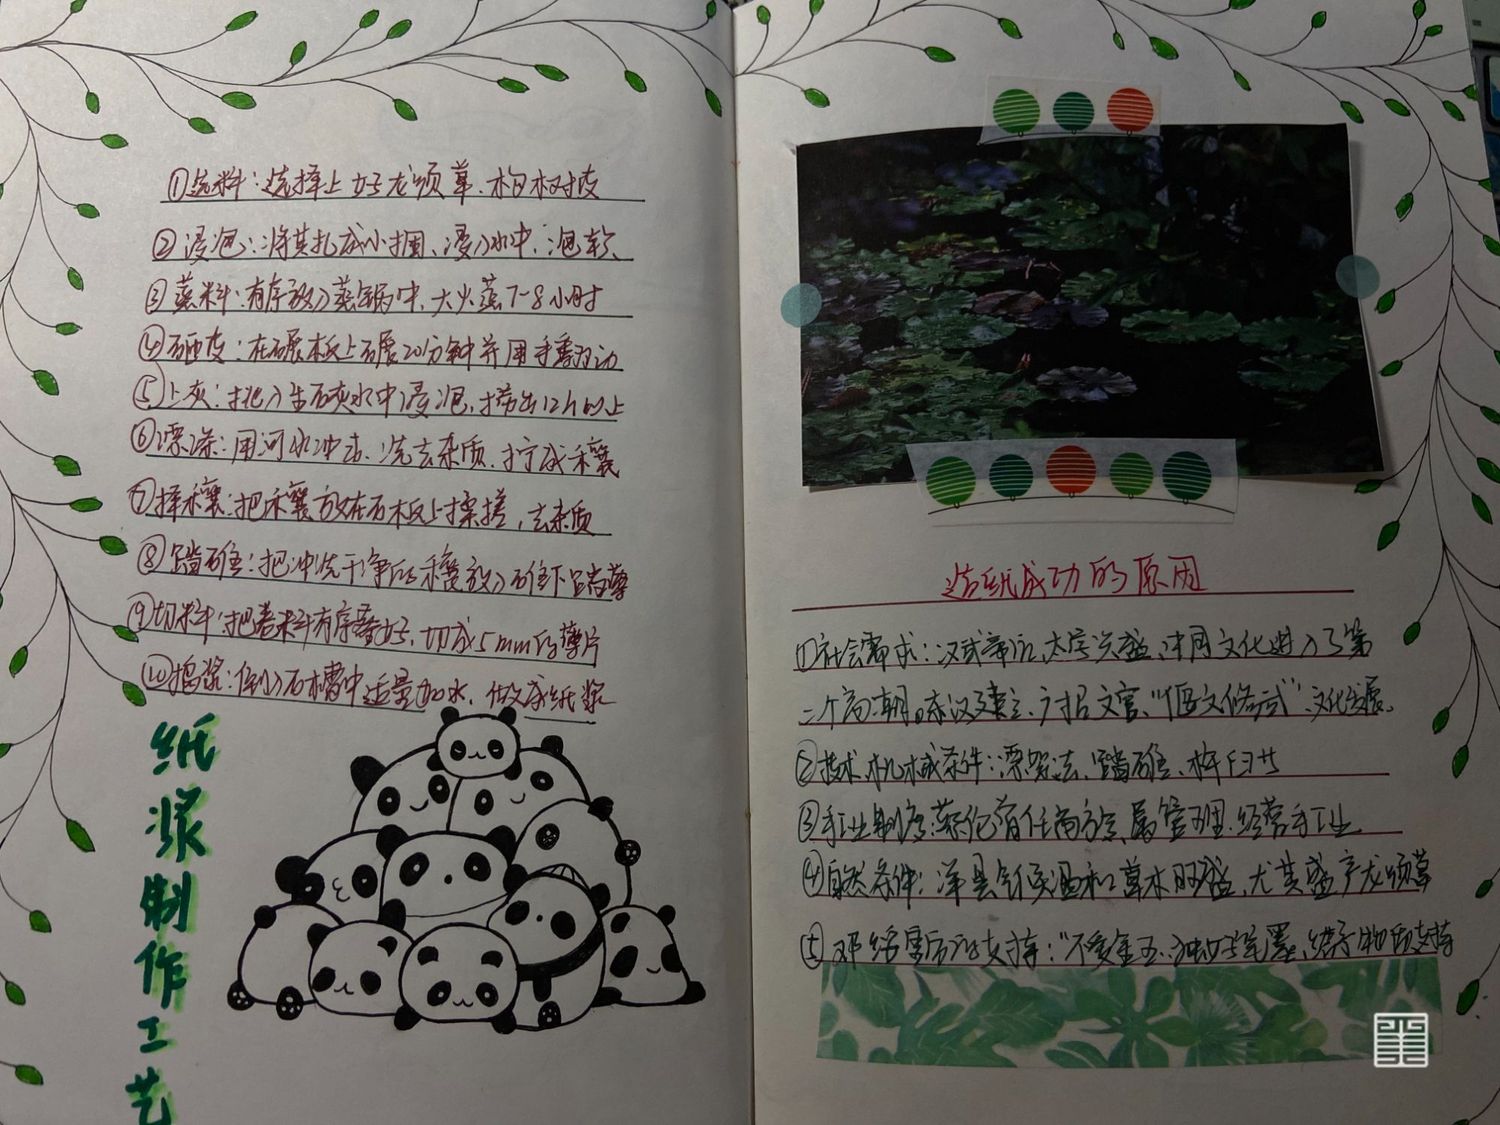 ①选料：选择上好龙须草、构树皮
②浸泡：将其扎成小捆、浸入水中、泡软、
③蒸料：有序放入蒸锅中，大火蒸7-8小时
④碾皮：在碾板上碾20分钟并用手翻动
⑤上灰：挑入生石灰水中浸泡，捞出12h以上
⑥漂涤：用河水冲击、洗去杂质、拧成禾穰
⑦择穰：把禾穰放在石板上揉搓，去杂质
⑧踏碓：把冲洗干净的禾穰放入碓下踏
⑨切料：把卷料有序叠好，切成5mm的薄片
⑩捣浆：倒入石槽中适量加水，做成纸浆
纸浆制作工艺
造纸成功的原因
①社会需求：汉武帝设太学兴盛，中国文化进入了第
二个高潮。东汉建立、广招文官、“偃文修武”、文化发展。
②技术、机械条件：漂絮法、踏碓、杵臼
③手工业制度：蔡伦曾任尚方令，属管理、经营手工业
④自然条件：洋县气候温和，草木旺盛，尤其盛产龙须草
⑤邓绥皇后的支持：“不爱金玉，独好笔墨、给予物质支持